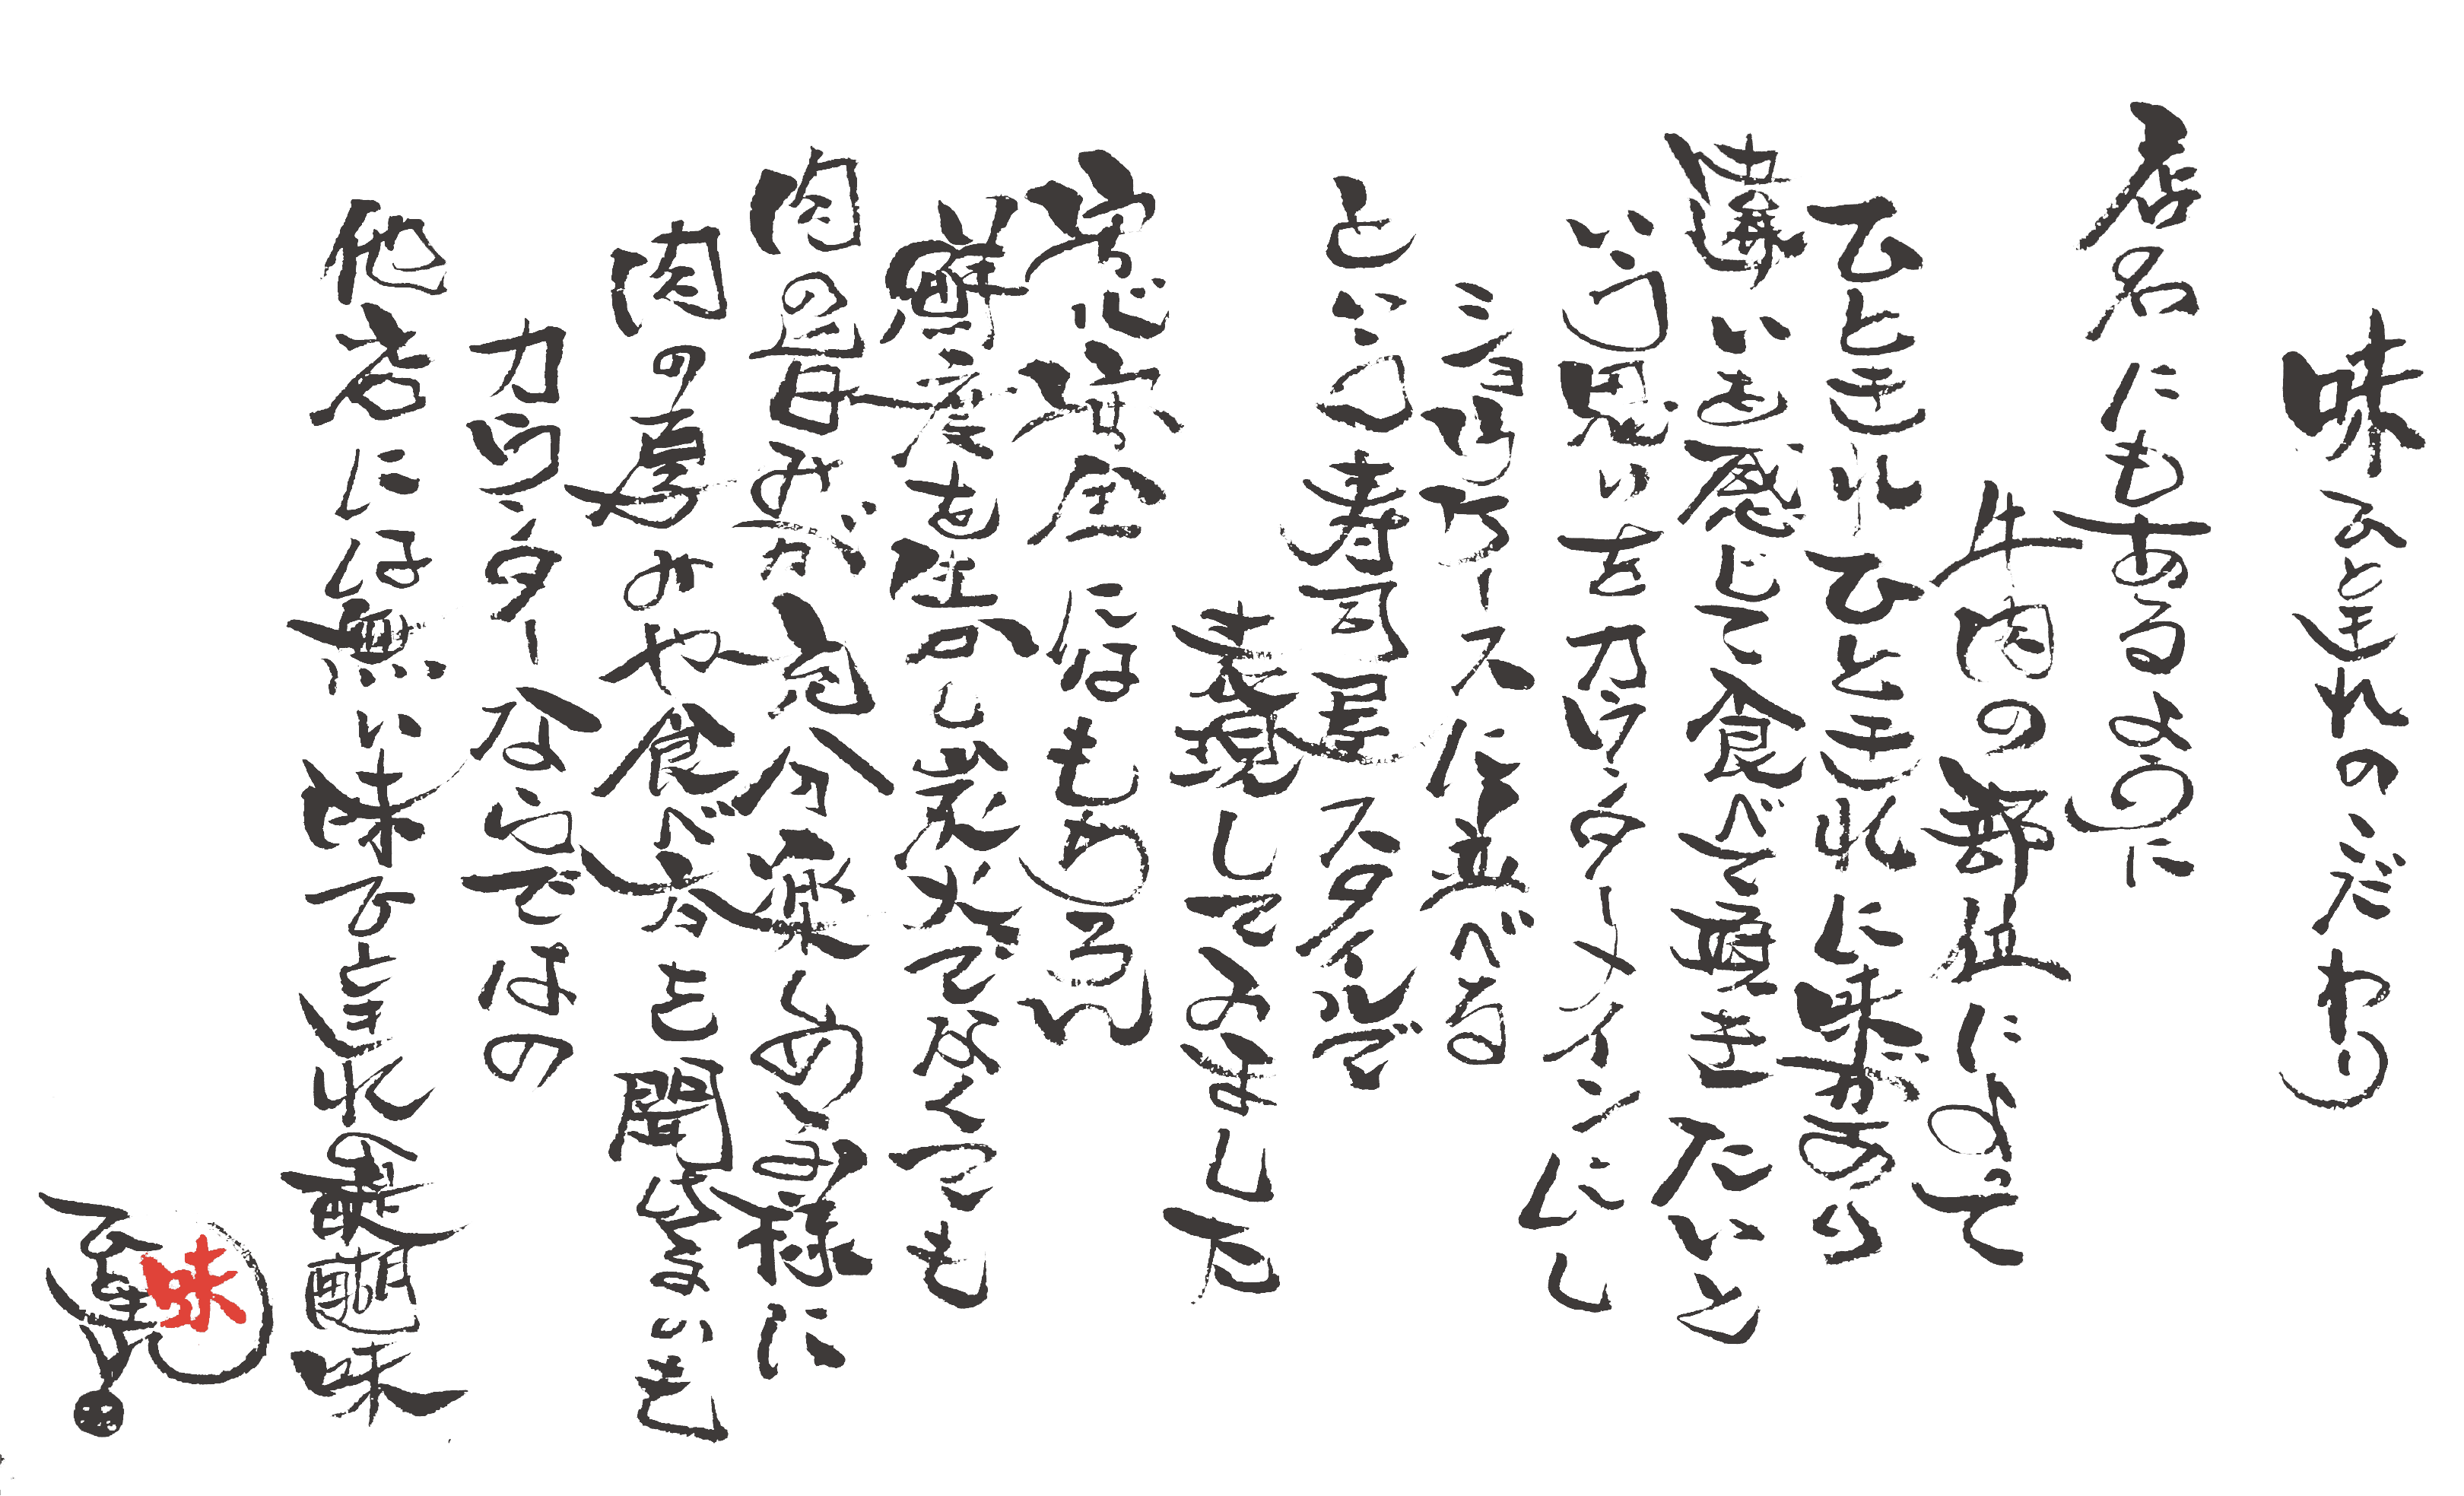 味ひときれのこだわり
店名にもあるように
牛肉の部位によって
ひときれひときれに味があり
違いも感じて食べて頂きたいと
いう思いをカウンターメインにし
ケースに並べる
という寿司屋スタイルで
表現してみました
安心安全はもちろん
鮮度も生かし炭火で
肉の旨みが充分楽しめる様に
肉の厚みや食べ方も聞
カウンターならではの
他店には無い味ひときれの醍醐味
味